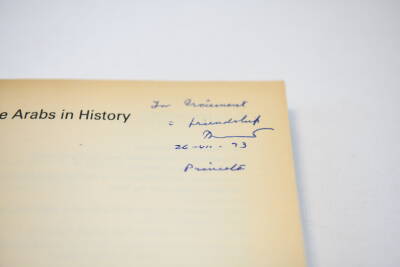 e Arabs in History
For
friendship
26-VII-73
Princeton